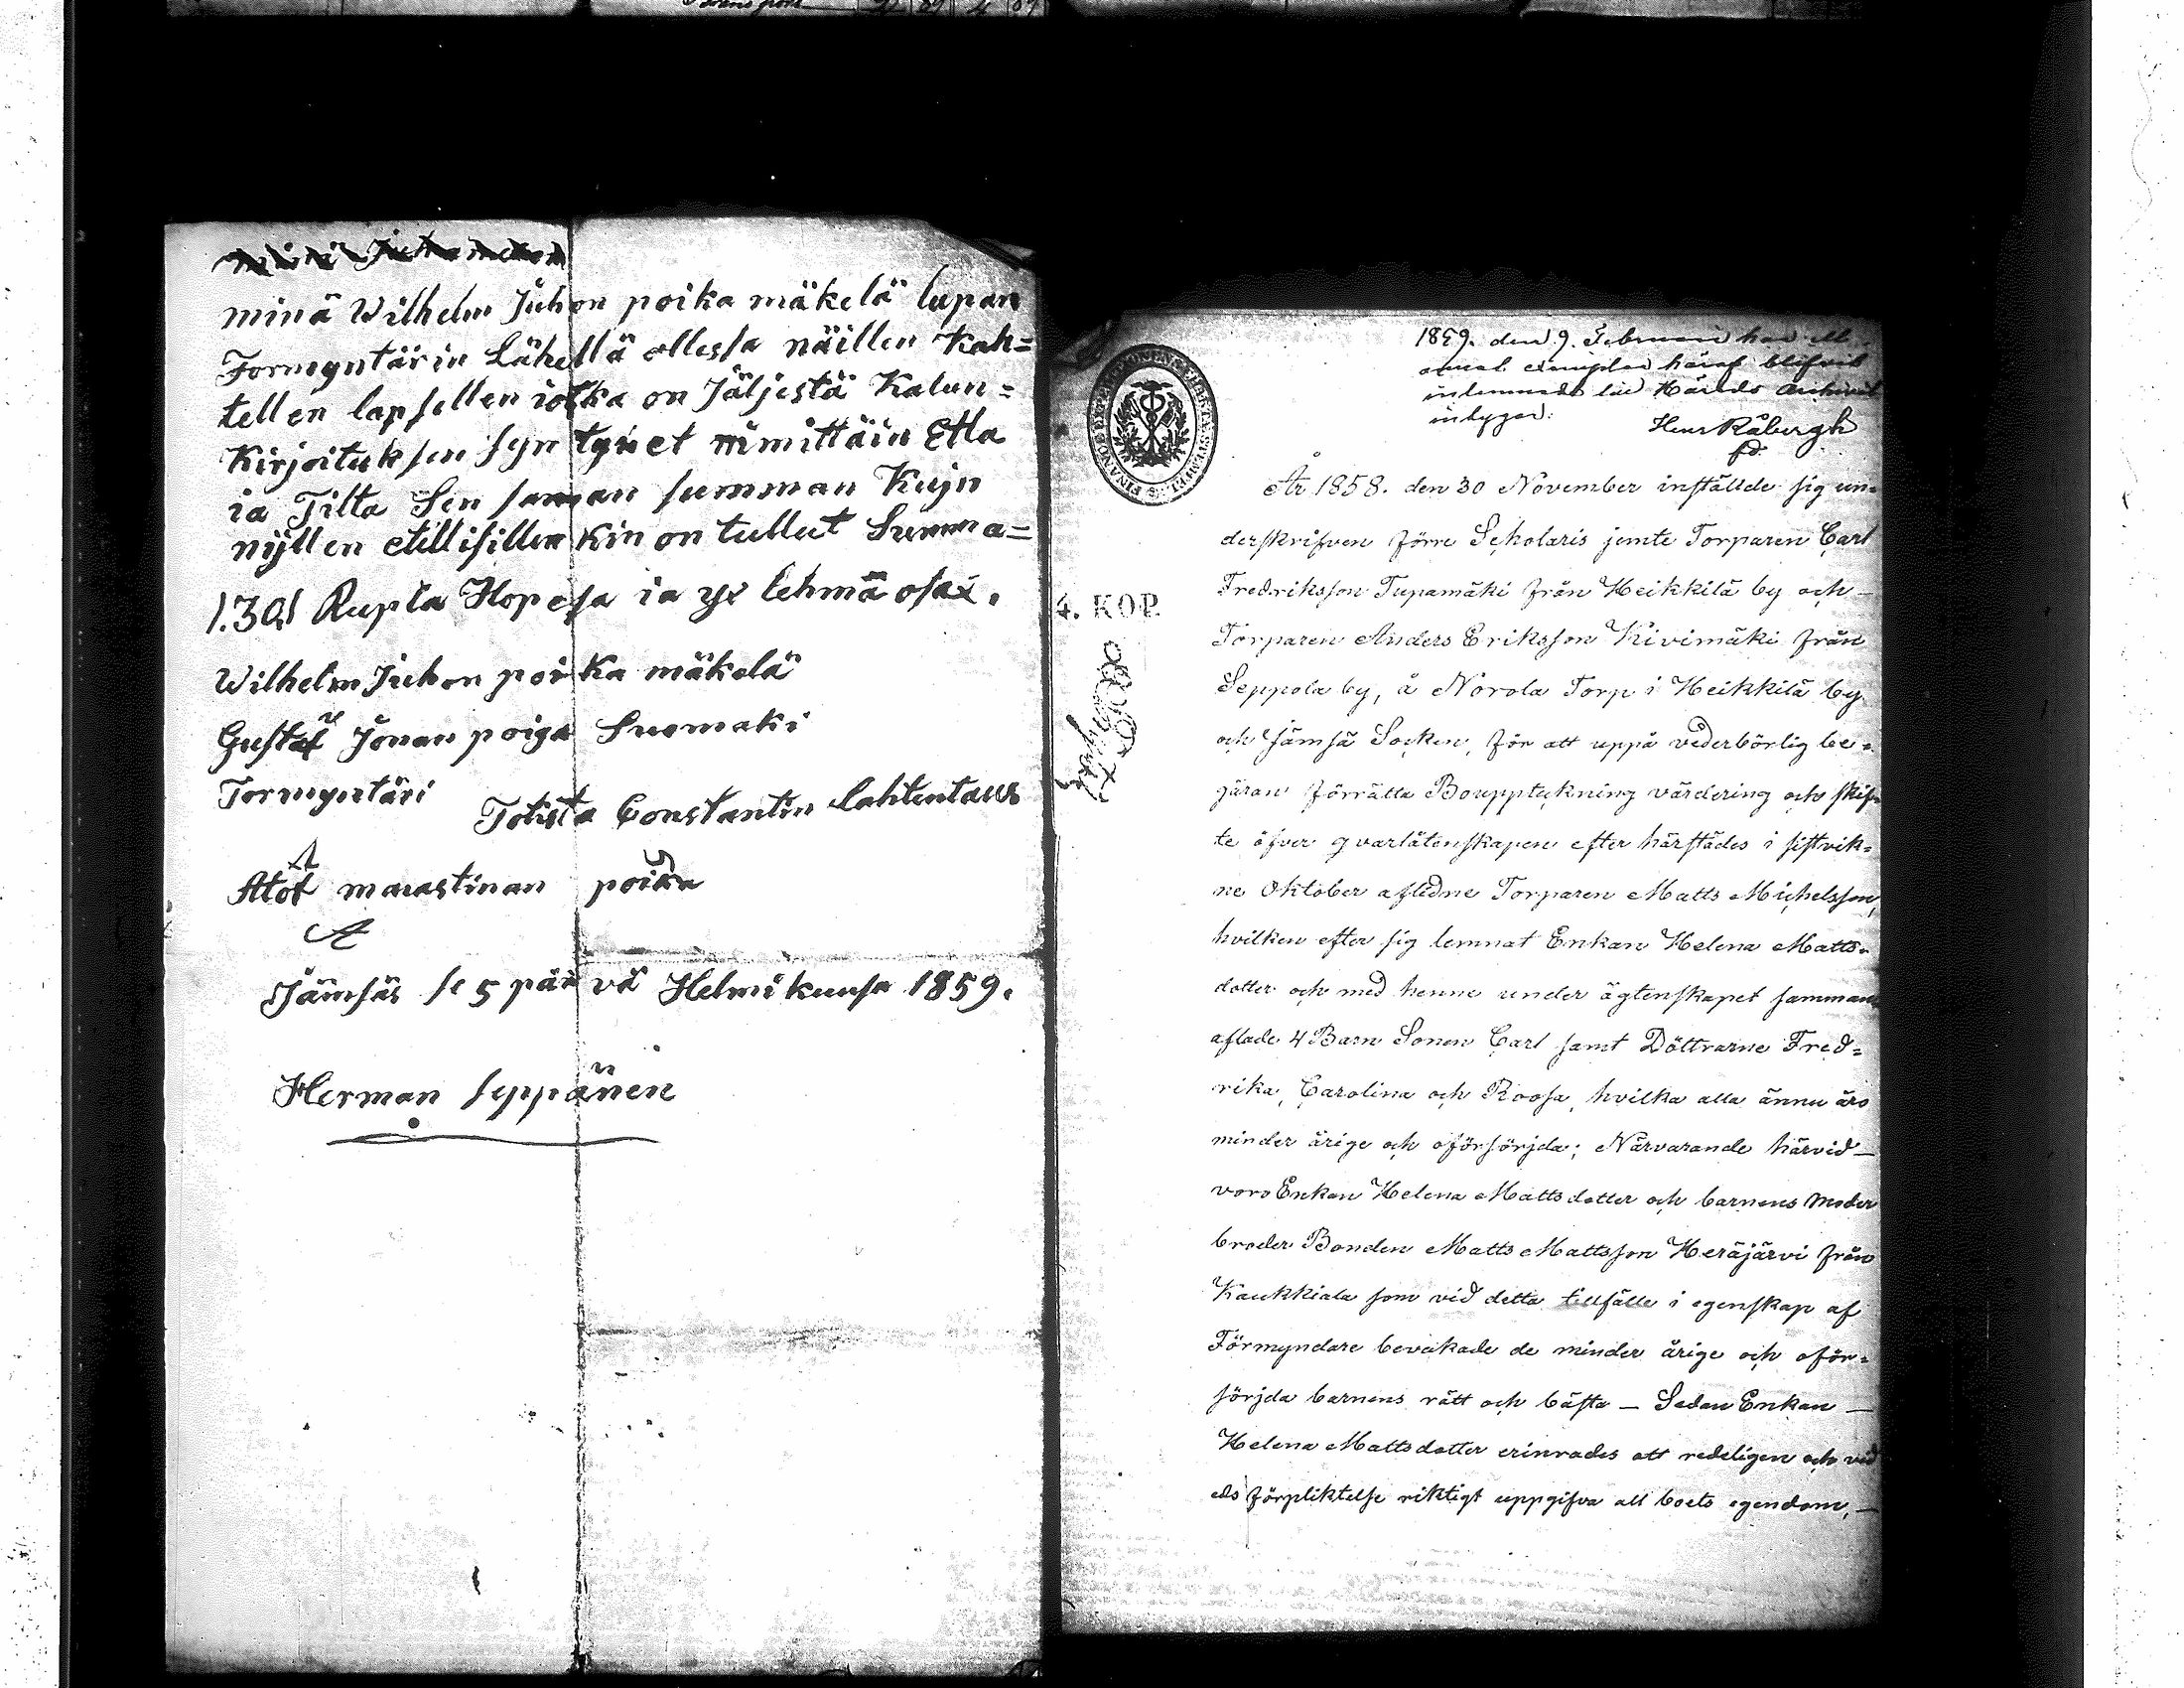 minä Wilhelm Juhon poika mäkelä lupan
Formyntärin Lähellä ollessa näillen Kah=
tellen lapsellen iotka on Jäljestä Kalun=
Kirjoituksen syntynet nimittäin Etla
ia Tilta Sen saman summan Kujn
nijllen etellisillen kin on tullut Summa=
1.30 1 Rupla Hopesa ia yx lehmä osax.
Wilhelm Juhon poika mäkelä
Gustaf Jonan poiga Suomaki
Formyntäri
Totista Constantin Lahtentaus
A
Atof maiastinan poika
A
Jämsäs se 5 päivä Helmikuusa 1859.
Herman Seppänen
1859. den 9. Februari har ett
annat exemplar häraf blifvit
inlemnadt till Härads Archivet
intygar:
Henr Råbergh
4. KOP.
År 1858. den 30 November inställde sig un=
derskrifven förre Scholaris jemte Torparen Carl
Fredriksson Tupamäki från Heikkilä by och
Torparen Anders Eriksson Kivimäki från
Seppola by, å Norola Torp i Heikkilä by
och Jämsä Socken, för att uppå vederbörlig be=
gäran förrätta Bouppteckning värdering och skif=
te öfver qvarlåtenskapen efter härstädes i sistvik=
ne Oktober aflidne Torparen Matts Michelsson,
hvilken efter sig lemnat Enkan Helena Matts=
dotter och med henne under ägtenskapet samman
aflade 4 Barn Sonen Carl samt Döttrarne Fred=
rika, Carolina och Roosa, hvilka alla ännu äro
minder årige och oförsörjda; Närvarande härvid
voro Enkan Helena Mattsdotter och barnens Moder
broder Bonden Matts Mattsson Heräjärvi från
Kaukkiala som vid detta tillfälle i egenskap af
Förmyndare bevakade de minder årige och oför=
sörjda barnens rätt och bästa — Sedan Enkan —
Helena Mattsdotter erinrades att redeligen och vid
eds förpliktelse riktigt uppgifva all boets egendom, —